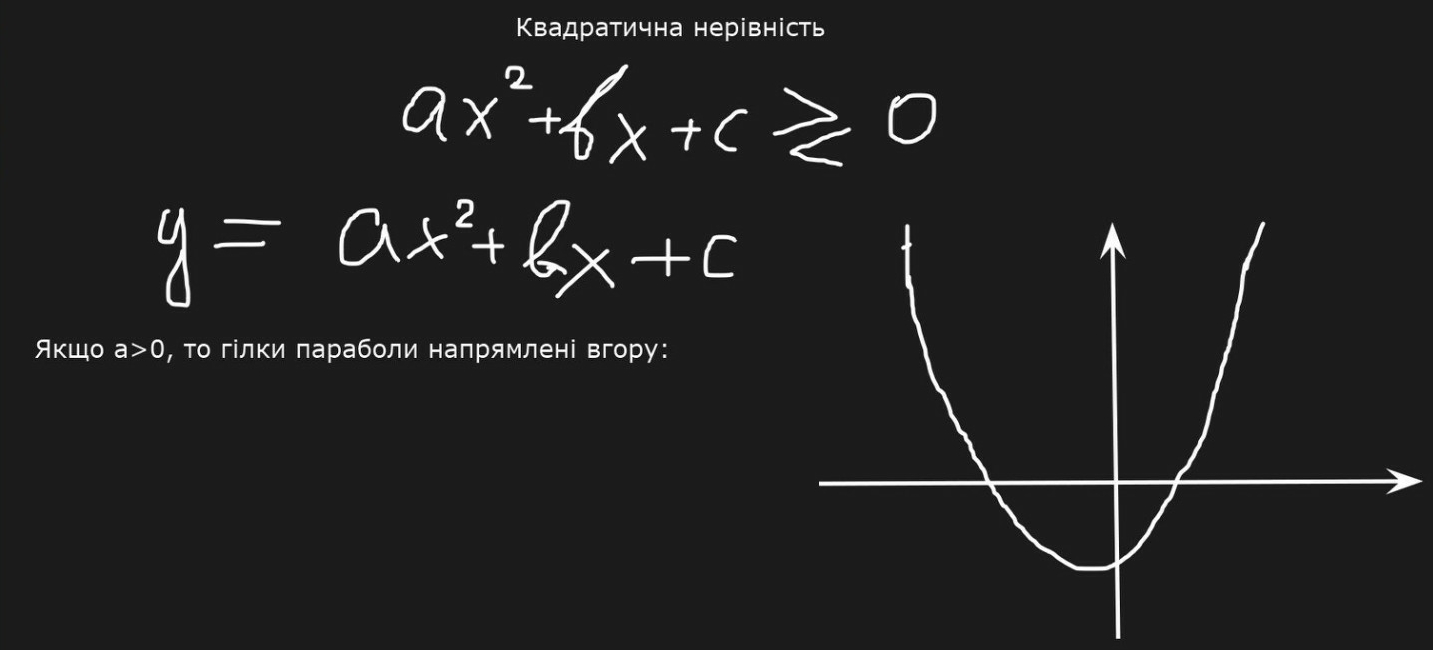 Квадратична нерівність
ax²+bx+c ⩾ 0
y = ax²+bx+c
Якщо a>0, то гілки параболи напрямлені вгору: